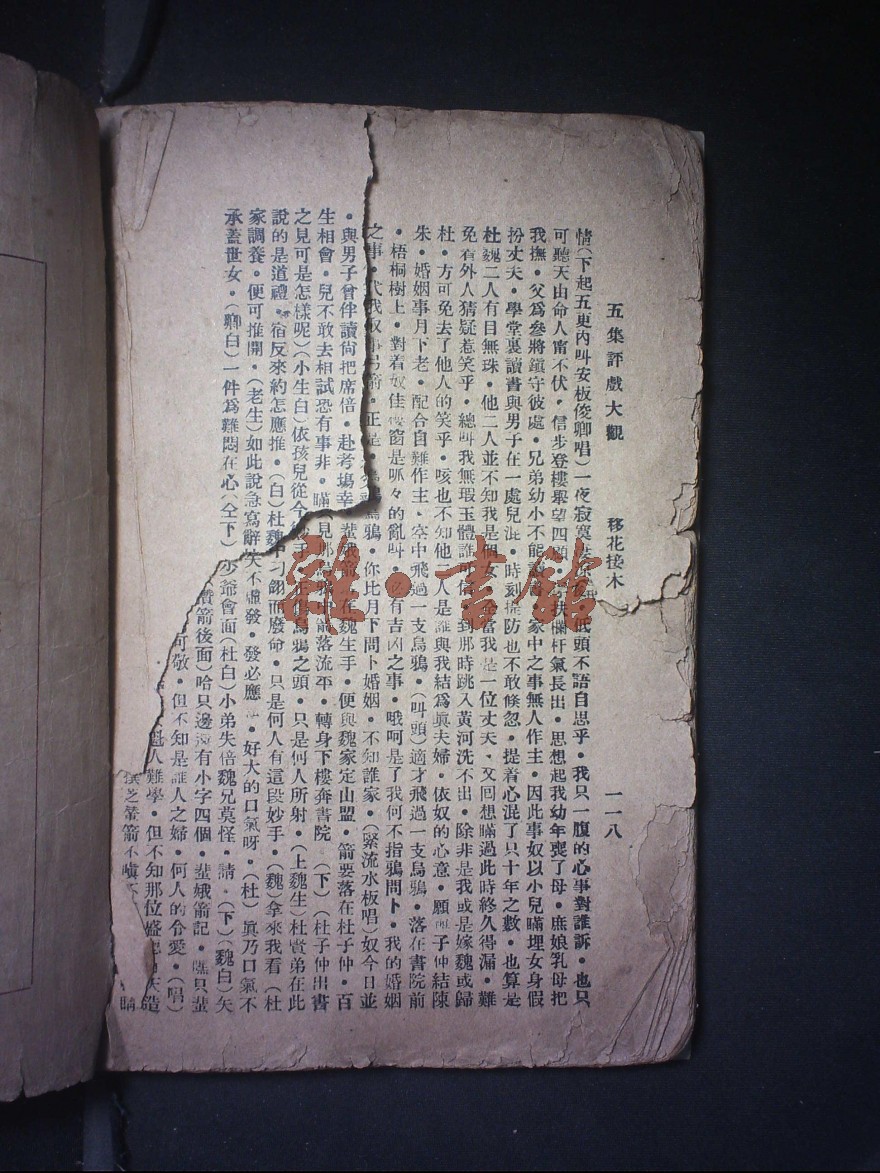 五集評戲大觀 移花接木 一一八
情(下起五更內叫安板俊卿唱)一夜寂寞 低頭不語自思乎•我只一腹的心事對誰訴•也只
可聽天由命人甯不伏•信步登樓聚望四顧• 扶欄杆氣長出•思想起我幼年喪了母•庶娘乳母把
我撫•父爲參將鎮守彼處•兄弟幼小不能 家中之事無人作主•因此事奴以小兒瞞埋女身假
扮丈夫•學堂裏讀書與男子在一處兒混•時刻提防也不敢倏忽•提着心混了只十年之數•也算是
杜魏二人有目無珠•他二人並不知我是個女 全當我是一位丈夫•又回想瞞過此時終久得漏•難
免有外人猜疑惹笑乎•總叫我無瑕玉體誰 信 到那時跳入黃河洗不出•除非是我或是嫁魏或歸
杜•方可免去了他人的笑乎•咳也不知他二人是誰與我結爲眞夫婦•依奴的心意•願 子仲結陳
朱•婚姻事月下老•配合自難作主•空中飛過一支烏鴉•(叫頭)適才飛過一支烏鴉•落在書院前
•梧桐樹上•對着奴佳樓窗是哌々的亂叫•必有吉凶之事•哦呵是了我何不指鴉問卜•我的婚姻
之事• 我取 弓箭•正是• 烏鴉•你比月下問卜婚姻•不知誰家•(緊流水板唱)奴今日並
•與男子曾伴讀尙把席倍•赴考塲幸 蜚娥箭 在魏生手•便與魏家定山盟•箭要落在杜子仲•百
生相會•兒不敢去相試恐有事非•瞞 見那 中箭落流平•轉身下樓奔書院(下)(杜子仲出書
之見可是怎樣呢)(小生白)依孩兒從今 手• 烏鴉之頭•只是何人所射•(上魏生)杜賢弟在此
說的是道禮•宿反來約怎應推•(白)杜魏 刁翎而廢命•只是何人有這段妙手•(魏)拿來我看(杜
家調養•便可推開•(老生)如此說急寫辭 矢不虛發•發必應 •好大的口氣呀•(杜)眞乃口氣不
承蓋世女•(卿白)一件爲難悶在心(仝下) 少爺會面(杜白)小弟失倍魏兄莫怪•請•(下)(魏白)矢
箭後面)哈只邊 有小字四個•蜚娥箭記•瞧只蜚
可敬•但不知是誰人之婦•何人的令愛•(唱)
人難學•但不知那位盛 天造
之蜚箭不嗔
購